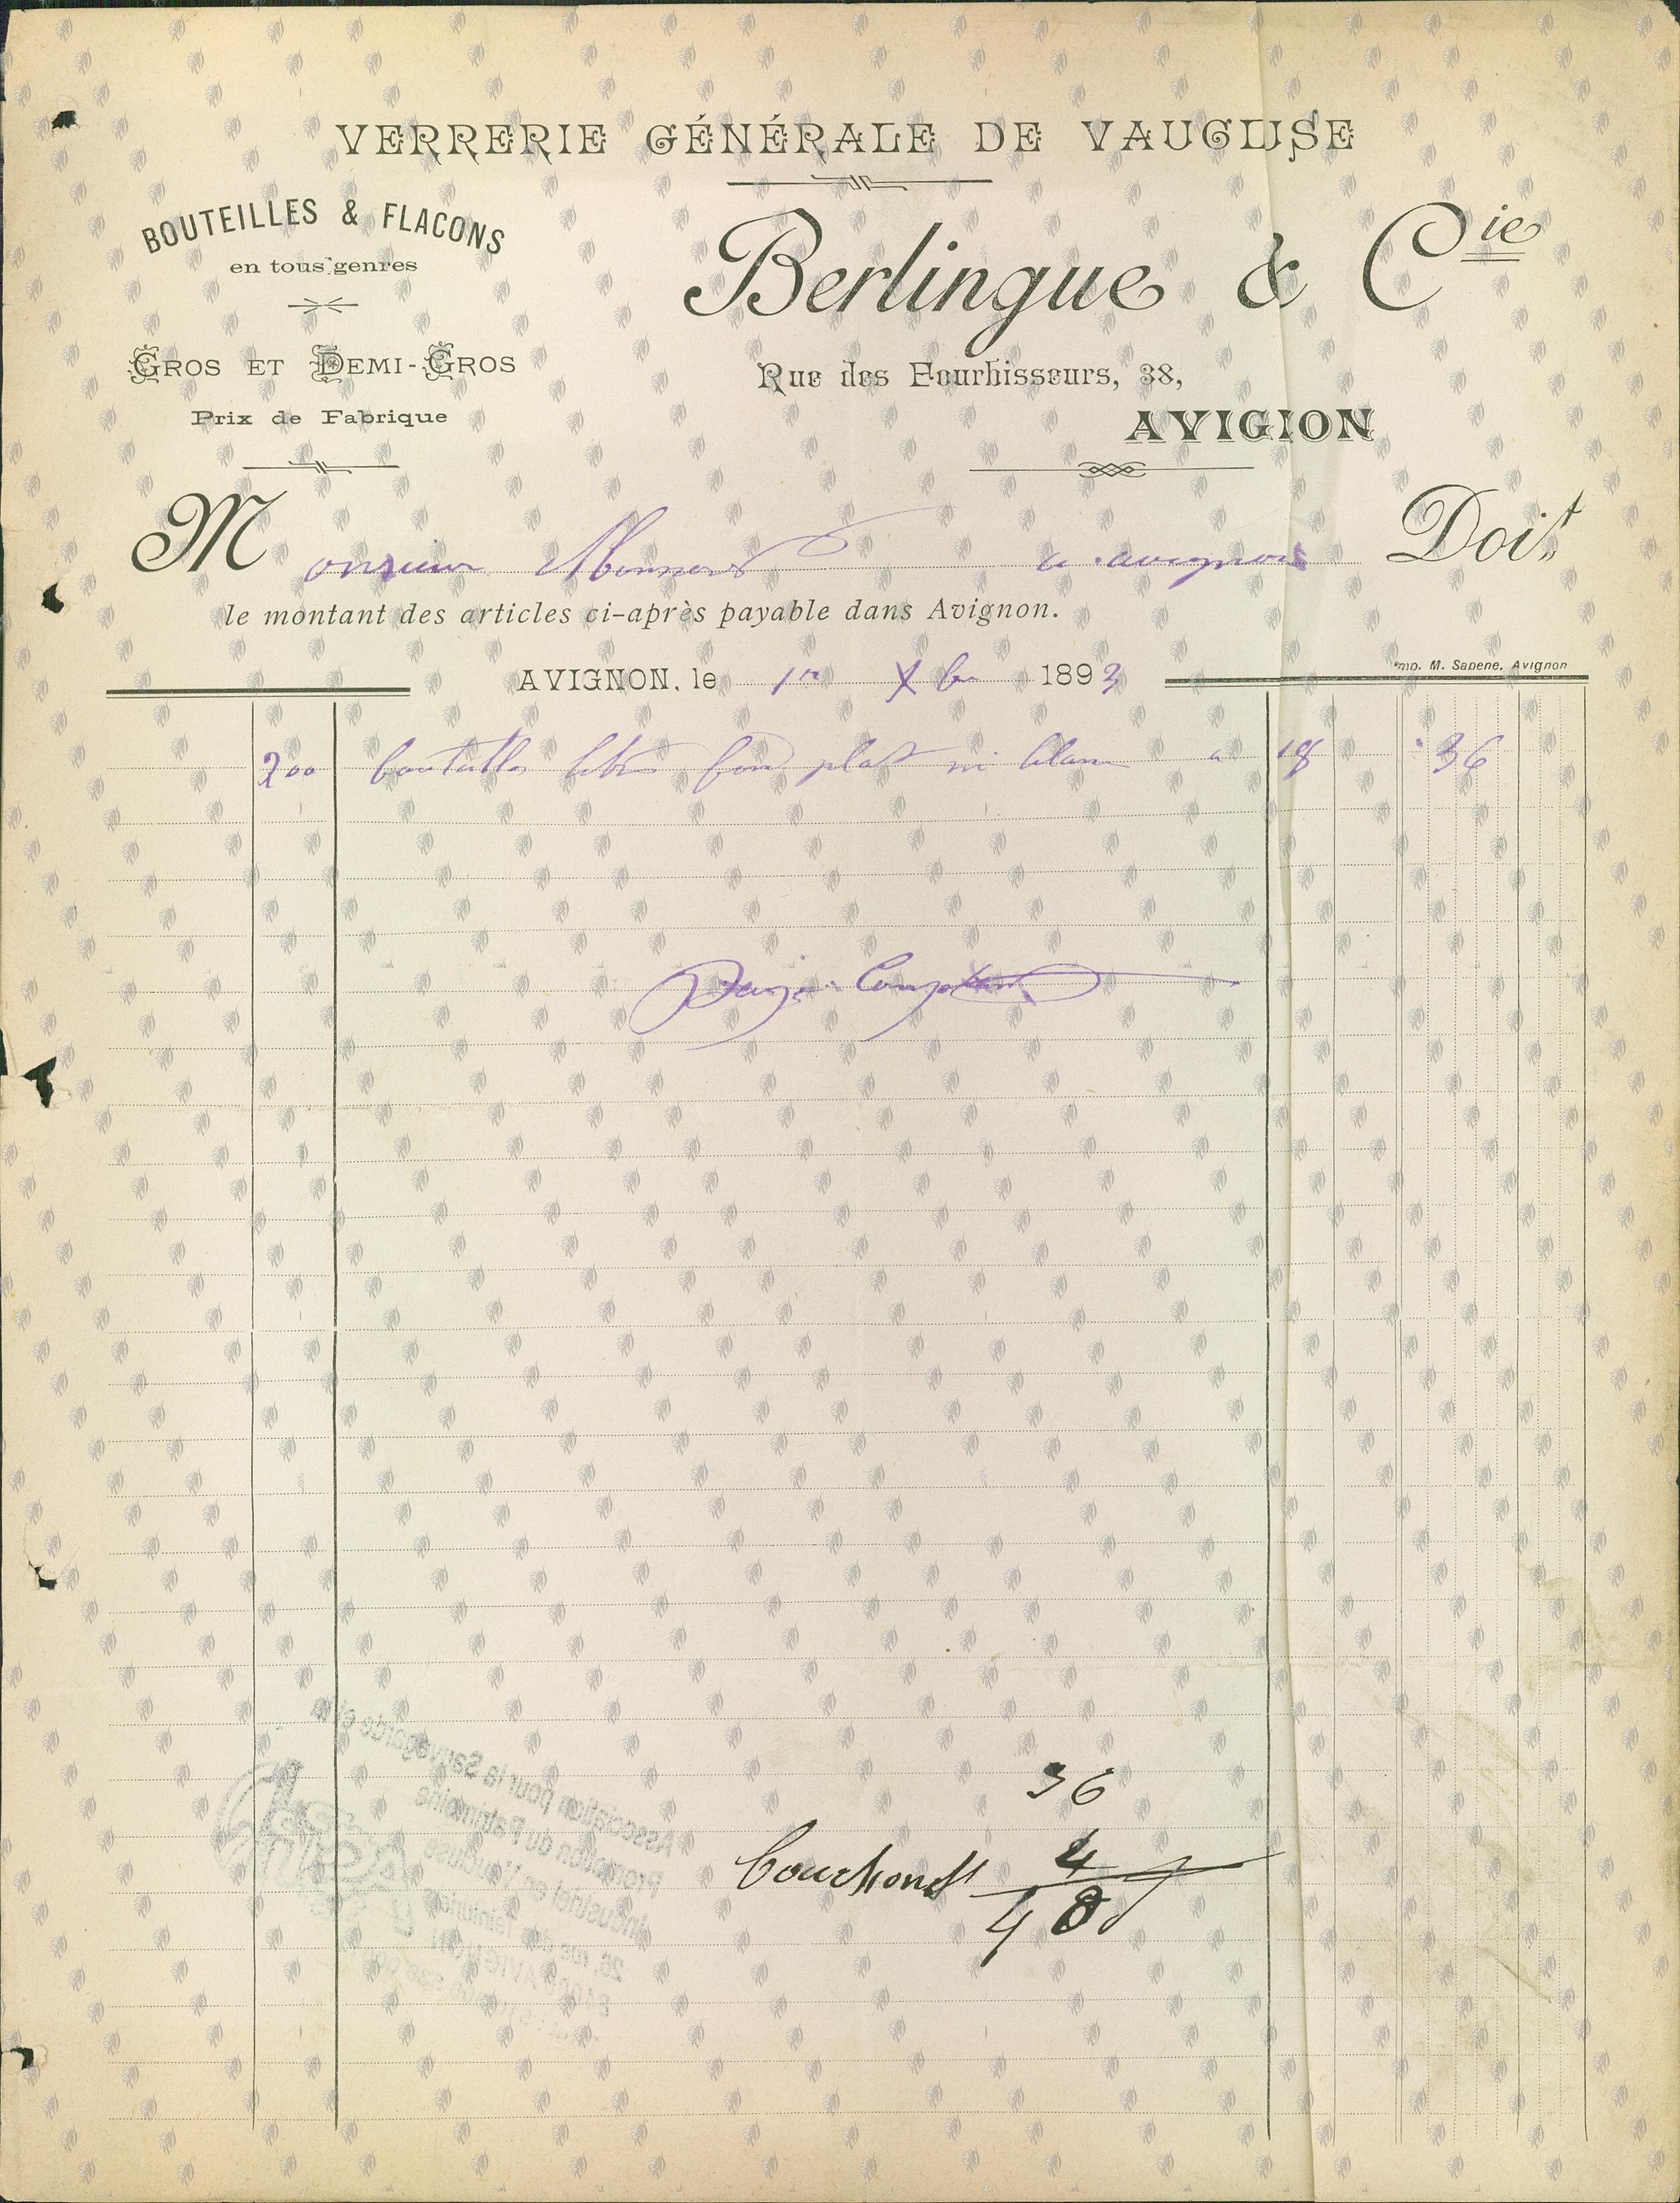 VERRERIE GÉNÉRALE DE VAUCLUSE
BOUTEILLES & FLACONS
en tous genres
GROS ET DEMI-GROS
Prix de Fabrique
Berlingue & Cie
Rue des Fourbisseurs, 38,
AVIGION
Monsieur Monnard a avignon Doit
le montant des articles ci-après payable dans Avignon.
Imp. M. Sapene, Avignon
AVIGNON, le 1er Xbre 1893
200 bouteilles litre fond plat mi blanc a 18 36
Comptant
36
bouchons 4
40
Association pour la Sauvegarde et la
Promotion du Patrimoine
Industriel en Vaucluse
26, rue des Teinturiers
84000 AVIGNON